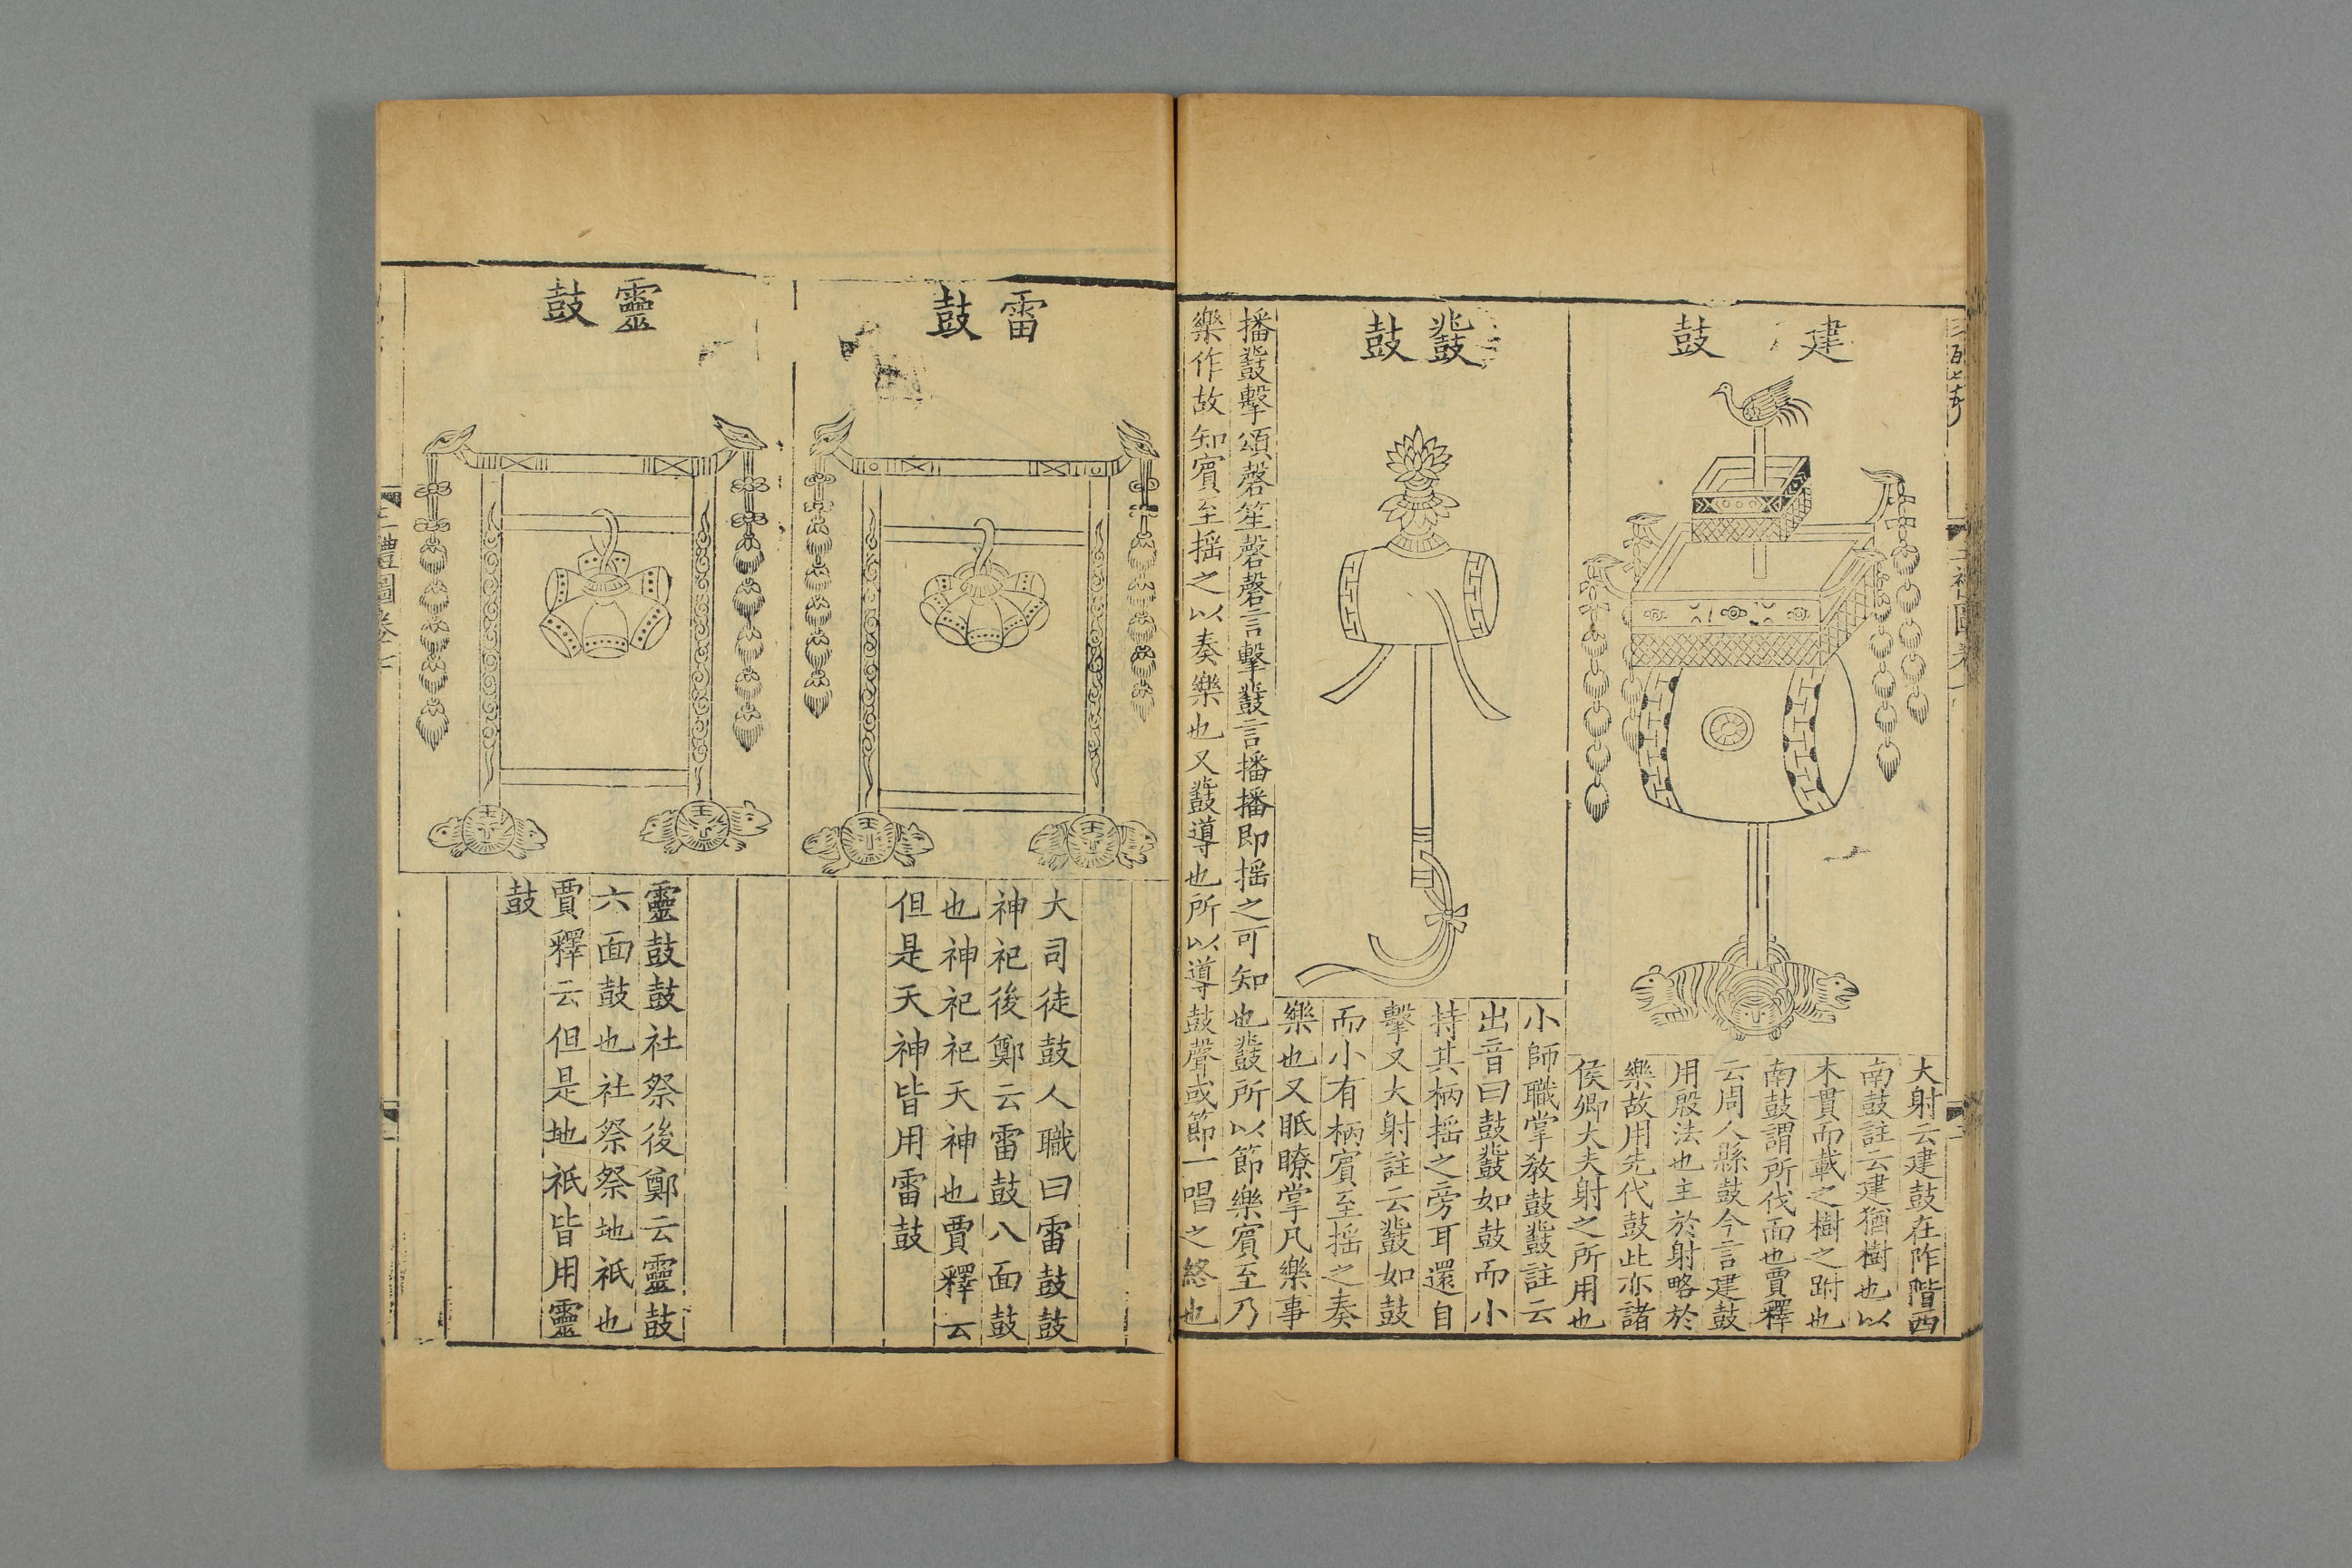 建鼓
大射云建鼓在阼階西
南鼓註云建猶樹也以
木貫而載之樹之跗也
南鼓謂所伐面也賈釋
云周人縣鼓今言建鼓
用殷法也主於射略於
樂故用先代鼓此亦諸
侯卿大夫射之所用也
鼗鼓
小師職掌教鼓鼗註云
出音曰鼓鼗如鼓而小
持其柄搖之旁耳還自
擊又大射註云鼗如鼓
而小有柄賓至搖之奏
樂也又眂瞭掌凡樂事
播鼗擊頌磬笙磬磬言擊鼗言播播即搖之可知也鼗所以節樂賓至乃
樂作故知賓至搖之以奏樂也又鼗導也所以導鼓聲或節一唱之終也
雷鼓
大司徒鼓人職曰雷鼓鼓
神祀後鄭云雷鼓八面鼓
也神祀祀天神也賈釋云
但是天神皆用雷鼓
靈鼓
靈鼓鼓社祭後鄭云靈鼓
六面鼓也社祭祭地祇也
賈釋云但是地祇皆用靈
鼓
三禮圖卷七